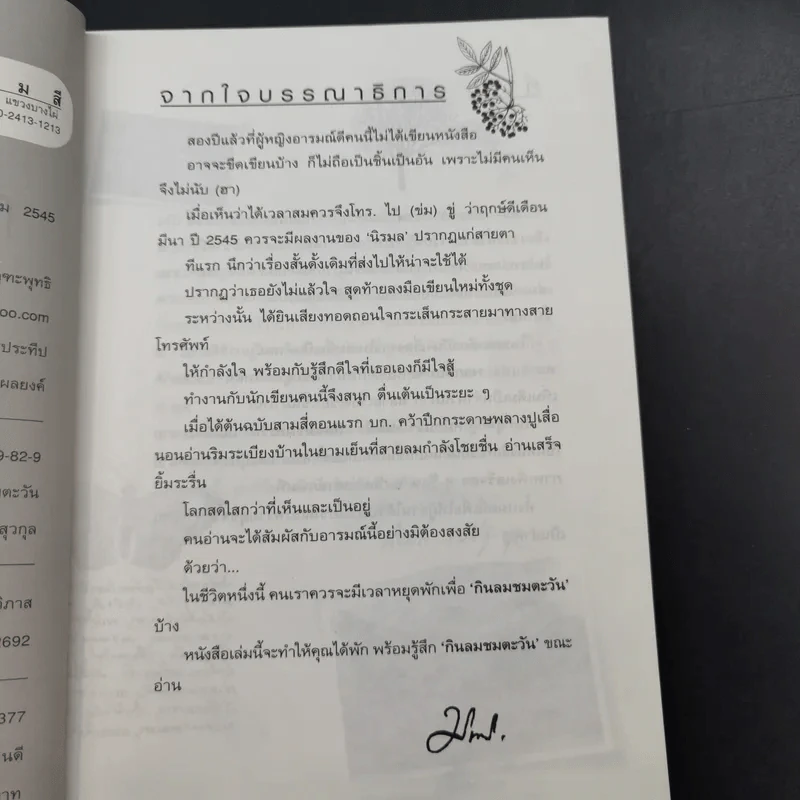 ม สี
แขวงบางไผ่
0-2413-1213
ม 2545
ฑะพุทธิ
oo.com
ประทีป
ผลยงค์
9-82-9
มตะวัน
สุวกุล
วิภาส
2692
377
นดี
าท
จากใจบรรณาธิการ
สองปีแล้วที่ผู้หญิงอารมณ์ดีคนนี้ไม่ได้เขียนหนังสือ
อาจจะขีดเขียนบ้าง ก็ไม่ถือเป็นชิ้นเป็นอัน เพราะไม่มีคนเห็น
จึงไม่นับ (ฮา)
เมื่อเห็นว่าได้เวลาสมควรจึงโทร. ไป (ข่ม) ขู่ ว่าฤกษ์ดีเดือน
มีนา ปี 2545 ควรจะมีผลงานของ ‘นิรมล’ ปรากฏแก่สายตา
ทีแรก นึกว่าเรื่องสั้นดั้งเดิมที่ส่งไปให้น่าจะใช้ได้
ปรากฏว่าเธอยังไม่แล้วใจ สุดท้ายลงมือเขียนใหม่ทั้งชุด
ระหว่างนั้น ได้ยินเสียงทอดถอนใจกระเส็นกระสายมาทางสาย
โทรศัพท์
ให้กำลังใจ พร้อมกับรู้สึกดีใจที่เธอเองก็มีใจสู้
ทำงานกับนักเขียนคนนี้จึงสนุก ตื่นเต้นเป็นระยะ ๆ
เมื่อได้ต้นฉบับสามสี่ตอนแรก บก. คว้าปึกกระดาษพลางปูเสื่อ
นอนอ่านริมระเบียงบ้านในยามเย็นที่สายลมกำลังโชยชื่น อ่านเสร็จ
ยิ้มระรื่น
โลกสดใสกว่าที่เห็นและเป็นอยู่
คนอ่านจะได้สัมผัสกับอารมณ์นี้อย่างมิต้องสงสัย
ด้วยว่า...
ในชีวิตหนึ่งนี้ คนเราควรจะมีเวลาหยุดพักเพื่อ ‘กินลมชมตะวัน’
บ้าง
หนังสือเล่มนี้จะทำให้คุณได้พัก พร้อมรู้สึก ‘กินลมชมตะวัน’ ขณะ
อ่าน